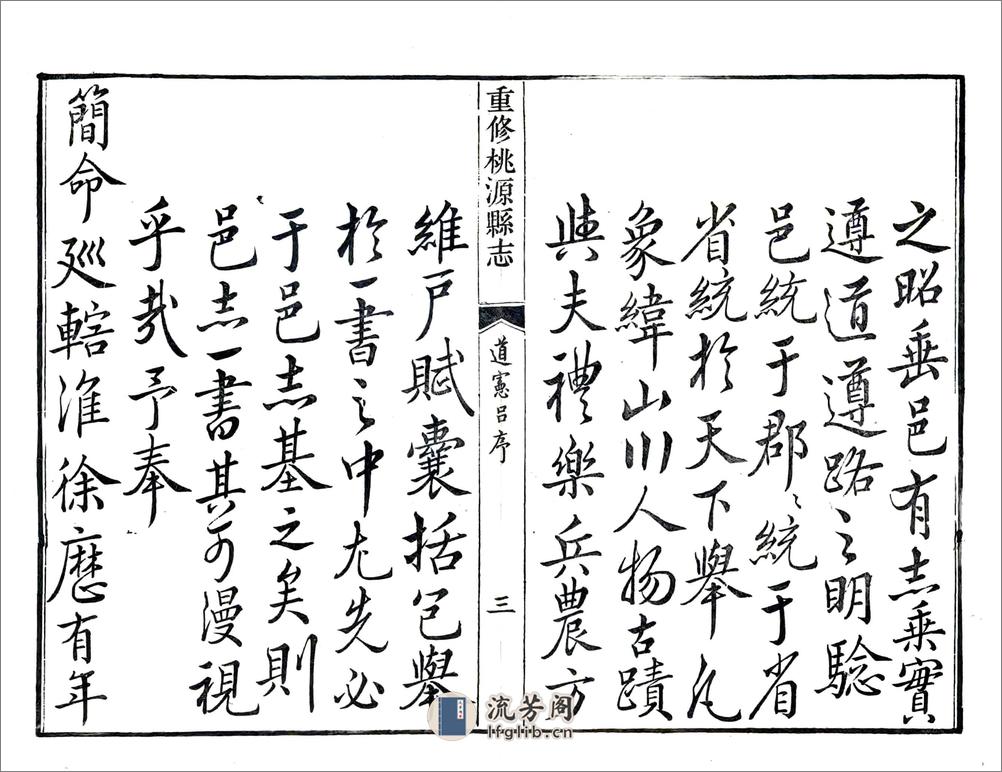 之昭垂邑有志乘實
遵道遵路之明驗
邑統于郡〻統于省
省統於天下舉凡
象緯山川人物古蹟
與夫禮樂兵農方
重修桃源縣志
道憲呂序
三
維戶賦囊括包舉
於一書之中尤先必
于邑志基之矣則
邑志一書其可漫視
乎哉予奉
簡命廵轄淮徐歷有年
流芳阁
lfglib.cn